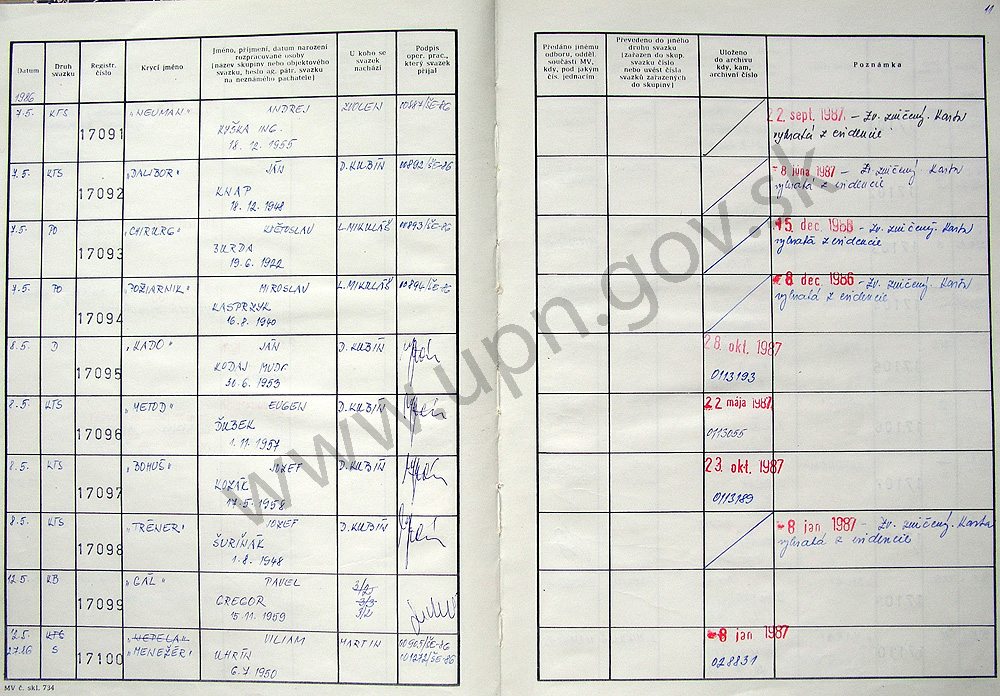 11
Datum
Druh svazku
Registr. číslo
Krycí jméno
Jméno, příjmení, datum narození
rozpracované osoby
(název skupiny nebo objektového
svazku, heslo ag. pátr. svazku
na neznámého pachatele)
U koho se
svazek
nachází
Podpis
oper. prac.,
který svazek
přijal
Předáno jinému
odboru, odděl.
součásti MV,
kdy, pod jakým
čís. jednacím
Převedeno do jiného
druhu svazku
(zařazen do skup.
svazku číslo
nebo uvést čísla
svazků zařazených
do skupiny)
Uloženo
do archivu
kdy, kam,
archivní číslo
Poznámka
1986
7.5. KTS 17091 „NEUMAN" ANDREJ
KYŠKA ING.
18. 12. 1955
ZVOLEN 10887/ŠE-86
22. sept. 1987 - Zv. zničený. Karta
vybratá z evidencie
7.5. KTS 17092 „DALIBOR" JÁN
KNAP
18. 12. 1948
D. KUBÍN 10892/ŠE-86
- 8 júna 1987 - Zv. zničený Karta
vybratá z evidencie
7.5. PO 17093 „CHIRURG" KVETOSLAV
BURDA
19. 6. 1922
L. MIKULÁŠ 10893/ŠE-86
15. dec. 1986 - Zv. zničený. Karta
vybratá z evidencie
7.5. PO 17094 „POŽIARNIK" MIROSLAV
KASPRZYK
16. 8. 1940
L. MIKULÁŠ 10894/ŠE-86
- 8 dec. 1986 - Zv. zničený. Karta
vybratá z evidencie
8.5. D 17095 „KADO" JÁN
KODAJ MUDr
30. 6. 1953
D. KUBÍN
28. okt. 1987
0113193
8.5. KTS 17096 „METOD" EUGEN
ŠUBEK
1. 11. 1957
D. KUBÍN
22 mája 1987
0113055
8.5. KTS 17097 „BOHUŠ" JOZEF
KOZÁK
17. 5. 1958
D. KUBÍN
23. okt. 1987
0113189
8.5. KTS 17098 „TRÉNER" JOZEF
ŠURIŇÁK
1. 8. 1948
D. KUBÍN
- 8 jan 1987 - Zv. zničený. Karta
vybratá z evidencie
12.5. KB 17099 „GÁL" PAVEL
GREGOR
15. 11. 1959
3/2
12.5. KTS 17100 VILIAM
S „MENEŽÉR"
UHRÍN
6. 7 1950
MARTIN 10905/ŠE-86
101272/ŠE-86
- 8 jan 1987
028831
MV č. skl. 734
www.upn.gov.sk